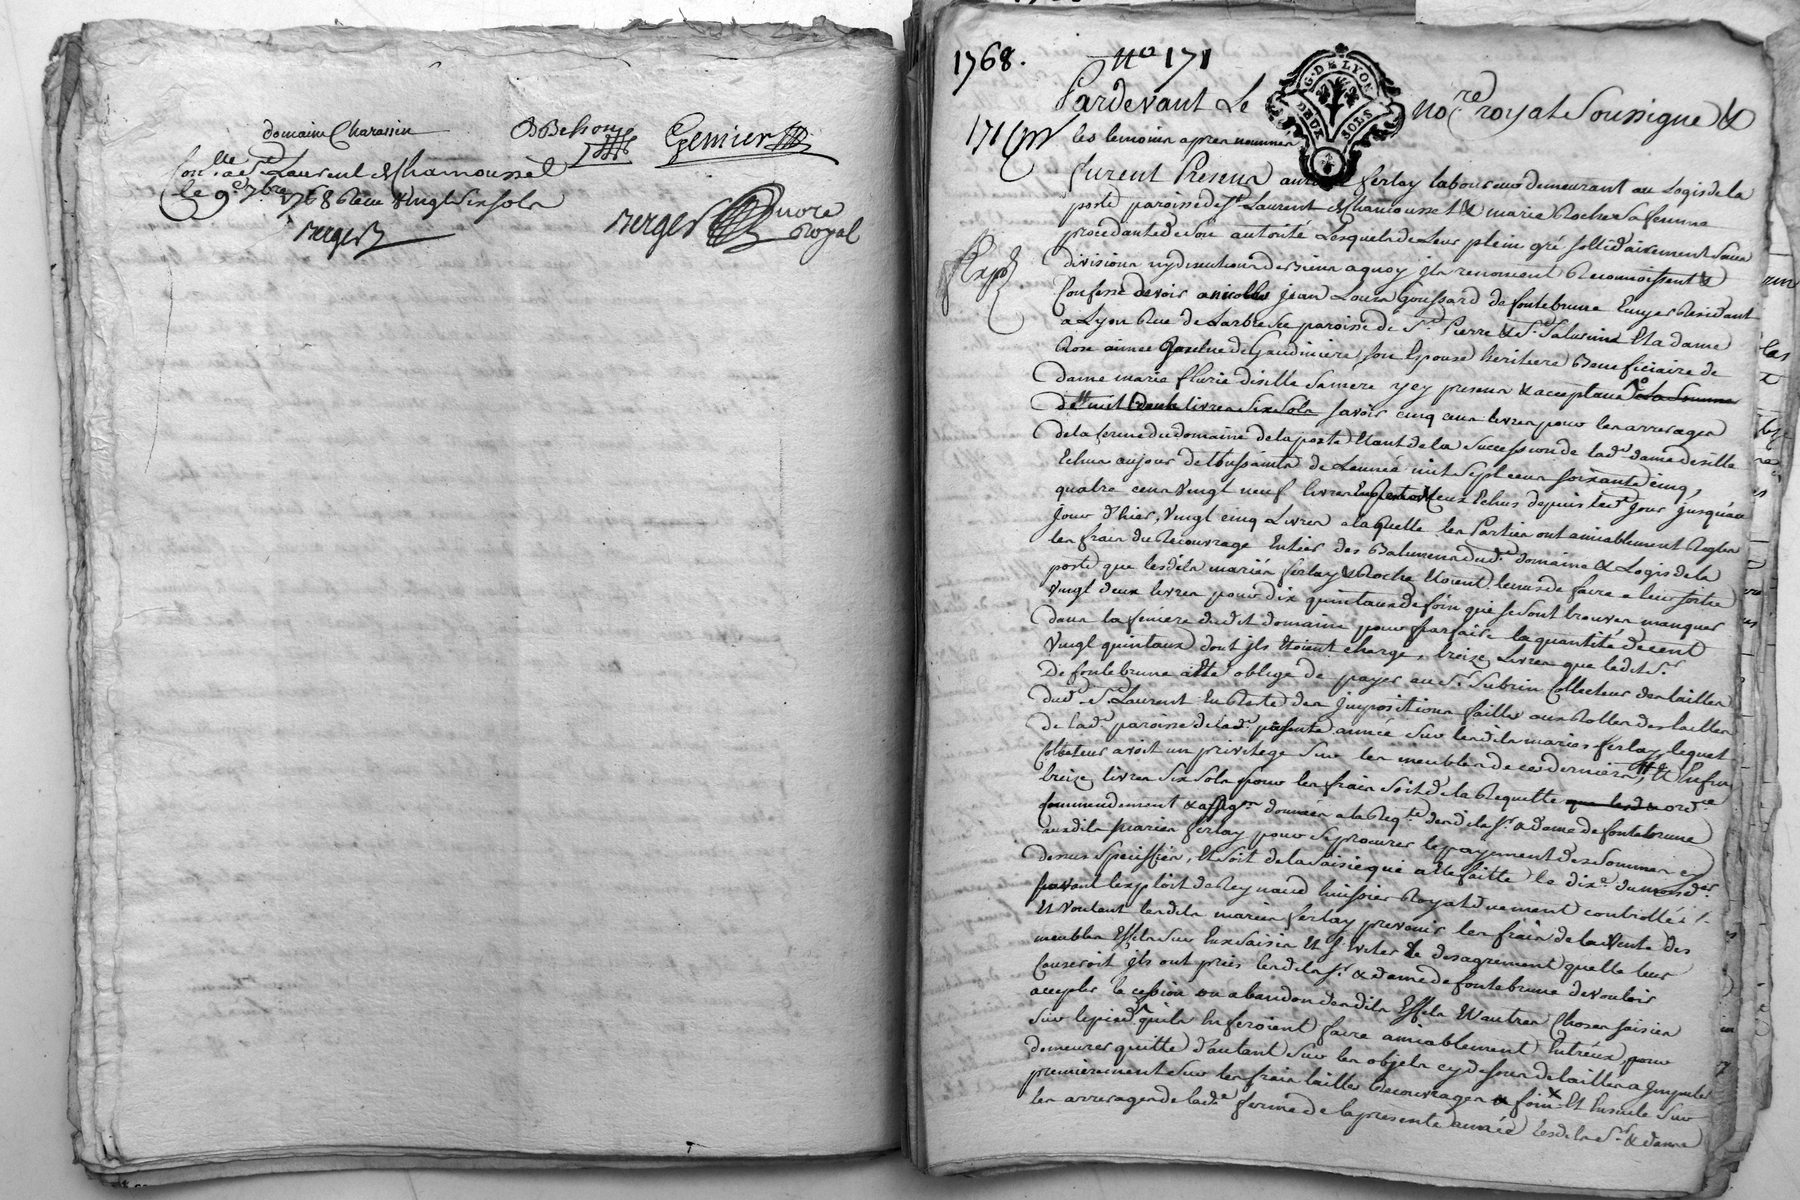 domaine Charassin
DBesson
Genier
Con.lle a St Laurent de Chamousset
le 9e 7bre 1768 Recu vingt six sols
Berger
Berger nore Royal
1768.
No 171
171
G. DE LYON
DEUX SOLS
Pardevant Le nore royal Soussigné &
les temoins apres nommés
furent Presens ferlay laboureur demeurant au Logis de la
poste paroisse de St Laurent de Chamousset & marie Roche sa femme
procedante de son autorité Lesquels de Leur plein gré sollidairement sans
division ny discution de biens a quoy ils renoncent Reconnoissent &
Confessé devoir a jean Louis Goussard de fontebrune Ecuyer Residant
a Lyon Rue de Larbre sec paroisse de St Pierre & St Saturnin Et a dame
Rose aimée de Gaudiniere son Epouse heritiere Beneficiaire de
dame marie fleurie disille sa mere icy presens & acceptans la Somme
de mil livres six sols savoir cinq cens livres pour les arrerages
de la ferme du domaine de la poste Etant de la Succession de lade dame disille
Echus au jour de toussaints de Lannée mil sept cens soixante cinq,
quatre cens vingt neuf livres Echus depuis led. jour jusqu'au
jour d'hier, vingt cinq Livres a laquelle les Parties ont amiablement Reglés
les frais du Recouvrage Entier des Batimens dud. domaine & Logis de la
poste que lesdits mariés ferlay & Roche Etoient tenus de faire a leur sortie
vingt deux livres pour dix quintaux de foin que se sont trouvés manquer
dans la feniere dudit domaine pour parfaire la quantité de cent
vingt quintaux dont ils Etoient chargé, treize Livres que ledit Sr
De fontebrune a été obligé de payer au Sr Subrin Collecteur des tailles
dud. St Laurent En Reste des impositions faittes aux Rolles des tailles
de lade paroisse de lade présente année sur lesdits mariés ferlay, lequel
Collecteur avoit un privilege sur les meubles de ces derniers, & Enfin
treize livres six sols pour les frais soit de la Requette ordce
Commendement & assigon donnés a la Reqte desdits Sr & Dame de fontebrune
auxdits mariés ferlay pour se procurer le payement des sommes cy
dessus speciffiées, Et soit de la saisie qui a été faitte le dixe du mois der
suivant lexploit de Reynaud huissier Royal duement controllé
Et voulant lesdits mariés ferlay prevenir les frais de la vente des
meubles Effets sur Eux saisis Et Eviter le desagrement quelle leur
Causeroit ils ont priés lesdits Sr & dame de fontebrune de vouloir
accepter la cession ou abandon desdits Effets & autres Choses saisies
sur le pied quils En feroient faire amiablement Entreux, pour
demeurer quitte d'autant sur les objets cy dessus detaillés a Imputer
premierement sur les frais tailles Recouvrages & foin Et Ensuite sur
les arrerages de lade ferme de la presente année lesdits Sr & dame